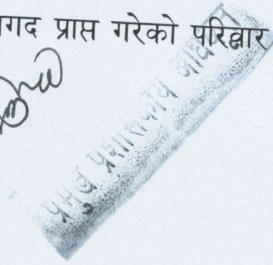 गद प्राप्त गरेको परिवार
प्रमुख प्रशासकीय अधिकृत